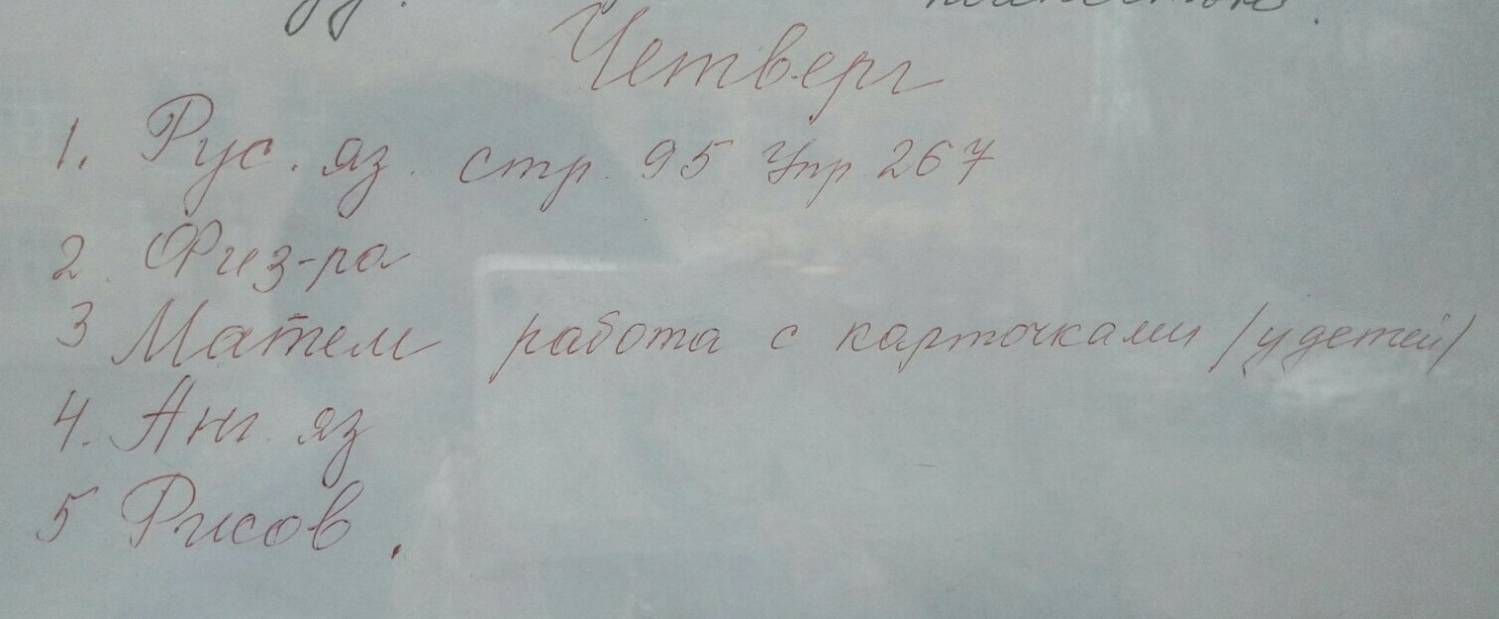 Четверг
1. Рус. яз. стр. 95 Упр 267
2. Физ-ра
3 Матем работа с карточками /у детей/
4. Анг. яз
5 Рисов.